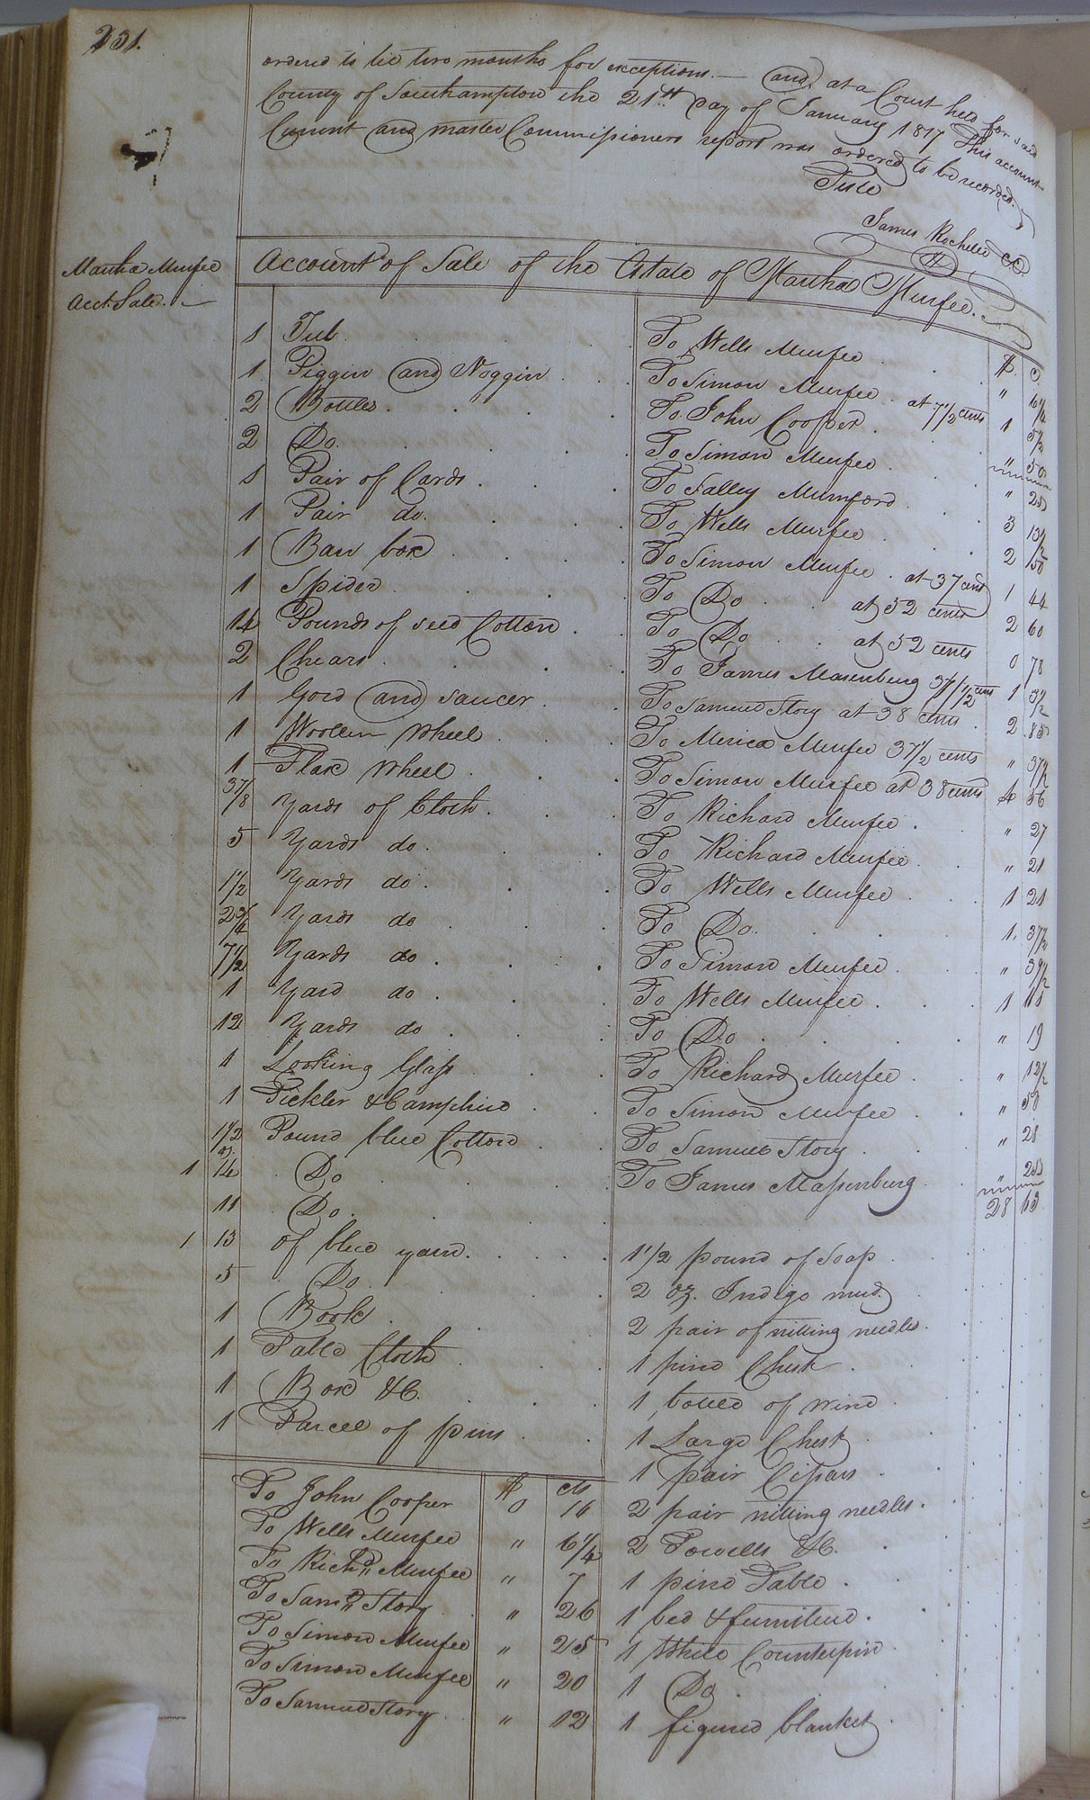 231.
ordered to lie two months for exceptions.— and at a Court held for said
County of Southampton the 21st day of January 1817 This account
Current and master Commissioners report was ordered to be recorded.
Teste
James Rochelle CC
Martha Murfee
Acct. Sale.
Account of Sale of the Estate of Martha Murfee.
$ C
1 Tub To Wells Murfee " 6 1/4
1 Piggin and Noggin To Simon Murfee at 7 1/2 cents 1
2 Bottles To John Cooper
2 Do. To Simon Murfee " 50
1 Pair of Cards To Salley Mumford " 25
1 Pair do. To Wells Murfee 3 13 1/2
1 Ban box To Simon Murfee at 37 cents 2 50
1 Spider To Do at 52 cents 1 44
14 Pounds of seed Cotton To Do at 52 cents 2 60
2 Chears To James Masenburg 37 1/2 cents 0 78
1 Gord and saucer To Samuel Story at 38 cents 1 37 1/2
1 Woollen Wheel To Merica Murfee 37 1/2 cents 2 85
1 Flax Wheel To Simon Murfee at 38 cents " 37 1/2
3 7/8 Yards of Cloth To Richard Murfee 4 56
5 Yards do. To Richard Murfee " 27
1 1/2 Yards do. To Wells Murfee " 21
2 3/4 Yards do To Do. 1 21
7 1/2 Yards do To Simon Murfee 1. 37 1/2
1 Yard do To Wells Murfee " 39 1/2
12 Yards do To Do 1
1 Looking Glass To Richard Murfee " 19
1 Pickler & Camphire To Simon Murfee " 12 1/2
1 1/2 Pound blue Cotton To Samuel Story " 50
1 14 Do To James Massenburg " 21
11 Do. " 25
28 13
1 13 of blue yarn. 1 1/2 pound of Soap
5 Do 2 oz. Indigo mud
1 Book 2 pair of nitting needles
1 Table Cloth 1 pine Chest
1 Box &C. 1 bottle of wine
1 Parcel of pins 1 Large Chest
$ cts 1 pair Cissars
To John Cooper 0 16 2 pair nitting needles.
To Wells Murfee " 6 1/4 2 Towells &C.
To Richd Murfee " 7 1 pine Table
To Saml Story " 26 1 bed & furniture.
To Simon Murfee " 25 1 White Counterpin
To Simon Murfee " 20 1 Do
To Samuel Story " 12 1 figured blanket